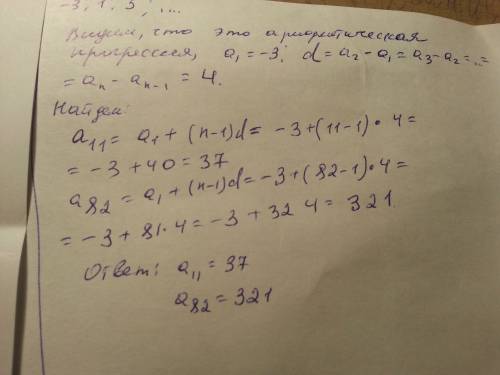 -3; 1; 5; ...
Видим, что это арифметическая
прогрессия, a₁ = -3; d = a₂ - a₁ = a₃ - a₂ = ... =
= aₙ - aₙ₋₁ = 4.
Найдем:
a₁₁ = a₁ + (n-1)d = -3 + (11-1) · 4 =
= -3 + 40 = 37
a₈₂ = a₁ + (n-1)d = -3 + (82-1) · 4 =
= -3 + 81 · 4 = -3 + 324 = 321.
Ответ: a₁₁ = 37
a₈₂ = 321